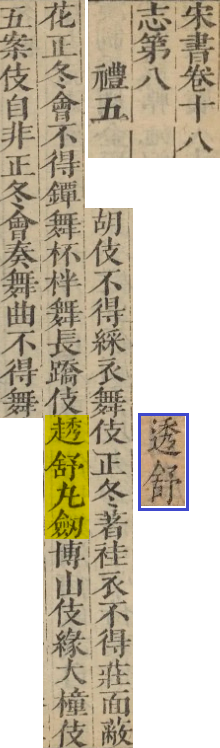 宋書卷十八
志第八
禮五
透舒
胡伎不得綵衣舞伎正冬著袿衣不得莊面蔽
花正冬會不得鐔舞杯柈舞長蹻伎舒丸劒博山伎緣大橦伎
五案伎自非正冬會奏舞曲不得舞